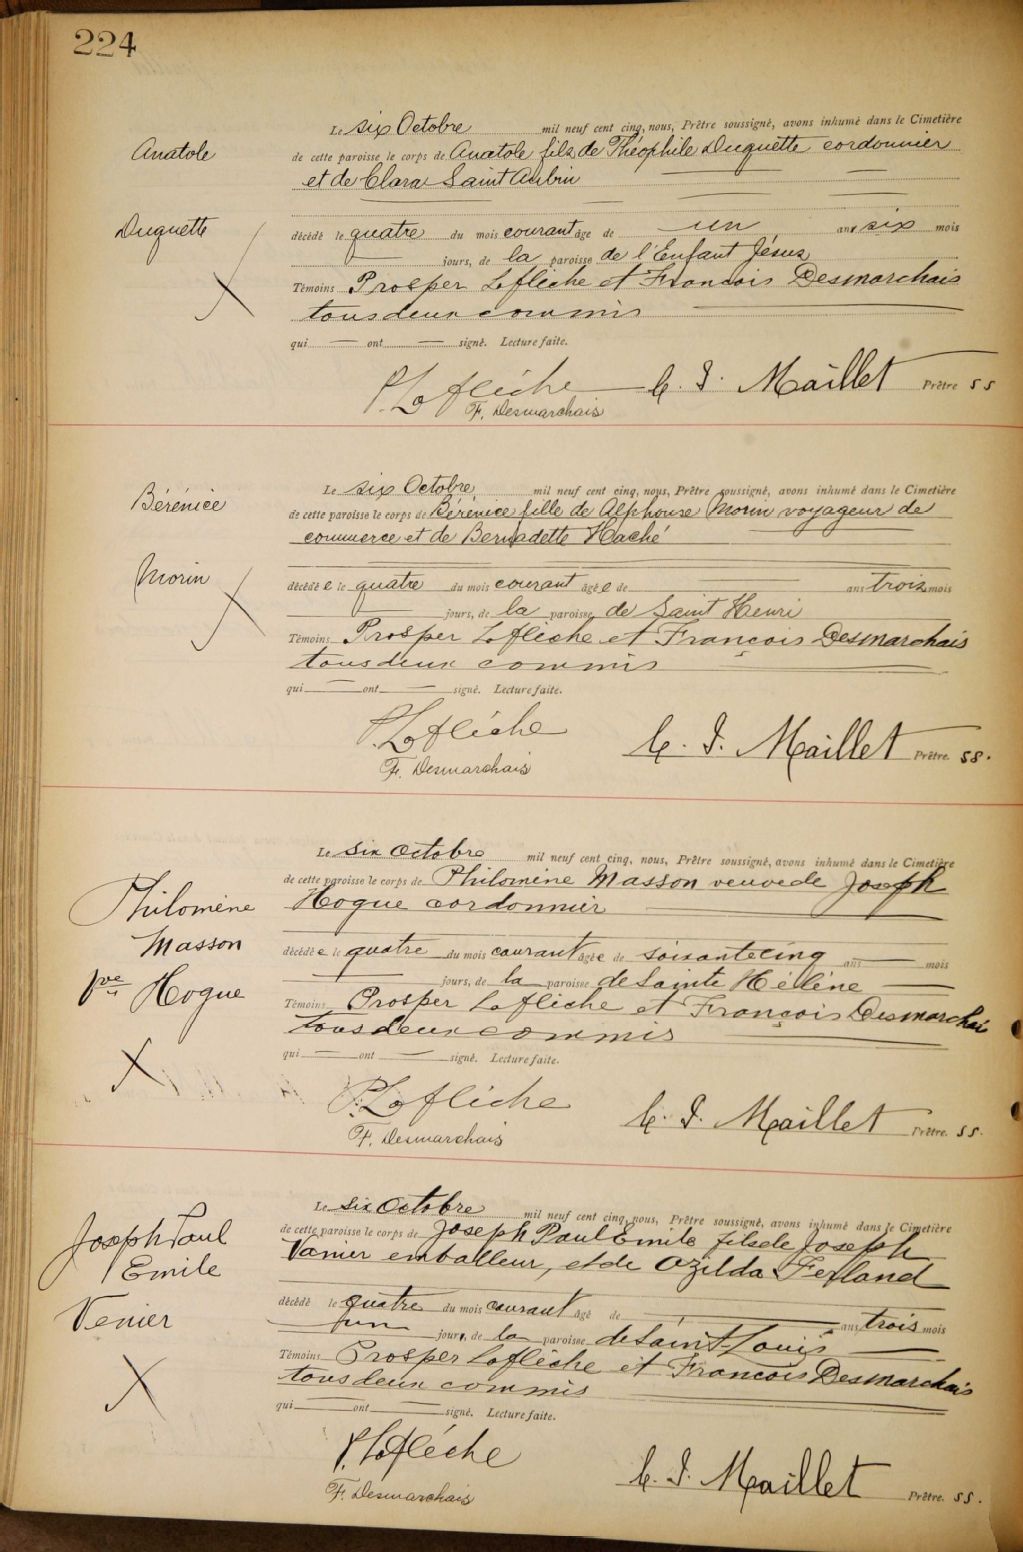 224
Le six Octobre mil neuf cent cinq, nous, Prêtre soussigné, avons inhumé dans le Cimetière
Anatole
de cette paroisse le corps de Anatole fils de Théophile Duquette cordonnier
et de Clara Saint Aubin
Duquette
décédé le quatre du mois courant âgé de un ans six mois
jours, de la paroisse de l'Enfant Jésus
Témoins Prosper Laflèche et François Desmarchais
tous deux commis
qui — ont — signé. Lecture faite.
P. Laflèche C. I. Maillet Prêtre SS
F. Desmarchais
Le six Octobre mil neuf cent cinq, nous, Prêtre soussigné, avons inhumé dans le Cimetière
Bérénice
de cette paroisse le corps de Bérénice fille de Alphonse Morin voyageur de
commerce et de Bernadette Haché
Morin
décédée le quatre du mois courant âgée de — ans trois mois
jours, de la paroisse de Saint Henri
Témoins Prosper Laflèche et François Desmarchais
tous deux commis
qui — ont — signé. Lecture faite.
P. Laflèche C. I. Maillet Prêtre SS.
F. Desmarchais
Le six Octobre mil neuf cent cinq, nous, Prêtre soussigné, avons inhumé dans le Cimetière
de cette paroisse le corps de Philomène Masson veuve de Joseph
Philomène
Hogue cordonnier
Masson
décédée le quatre du mois courant âgée de soixante cinq ans — mois
Vve Hogue
jours, de la paroisse de Sainte Hélène
Témoins Prosper Laflèche et François Desmarchai
tous deux commis
qui — ont — signé. Lecture faite.
P. Laflèche C. I. Maillet Prêtre. SS.
F. Desmarchais
Le six Octobre mil neuf cent cinq, nous, Prêtre soussigné, avons inhumé dans le Cimetière
Joseph Paul
de cette paroisse le corps de Joseph Paul Emile fils de Joseph
Emile
Vanier emballeur, et de Ozilda Ferland
Venier
décédé le quatre du mois courant âgé de — ans trois mois
un jours, de la paroisse de Saint-Louis
Témoins Prosper Laflèche et François Desmarchais
tous deux commis
qui — ont — signé. Lecture faite.
P. Laflèche
F. Desmarchais C. I. Maillet Prêtre. SS.